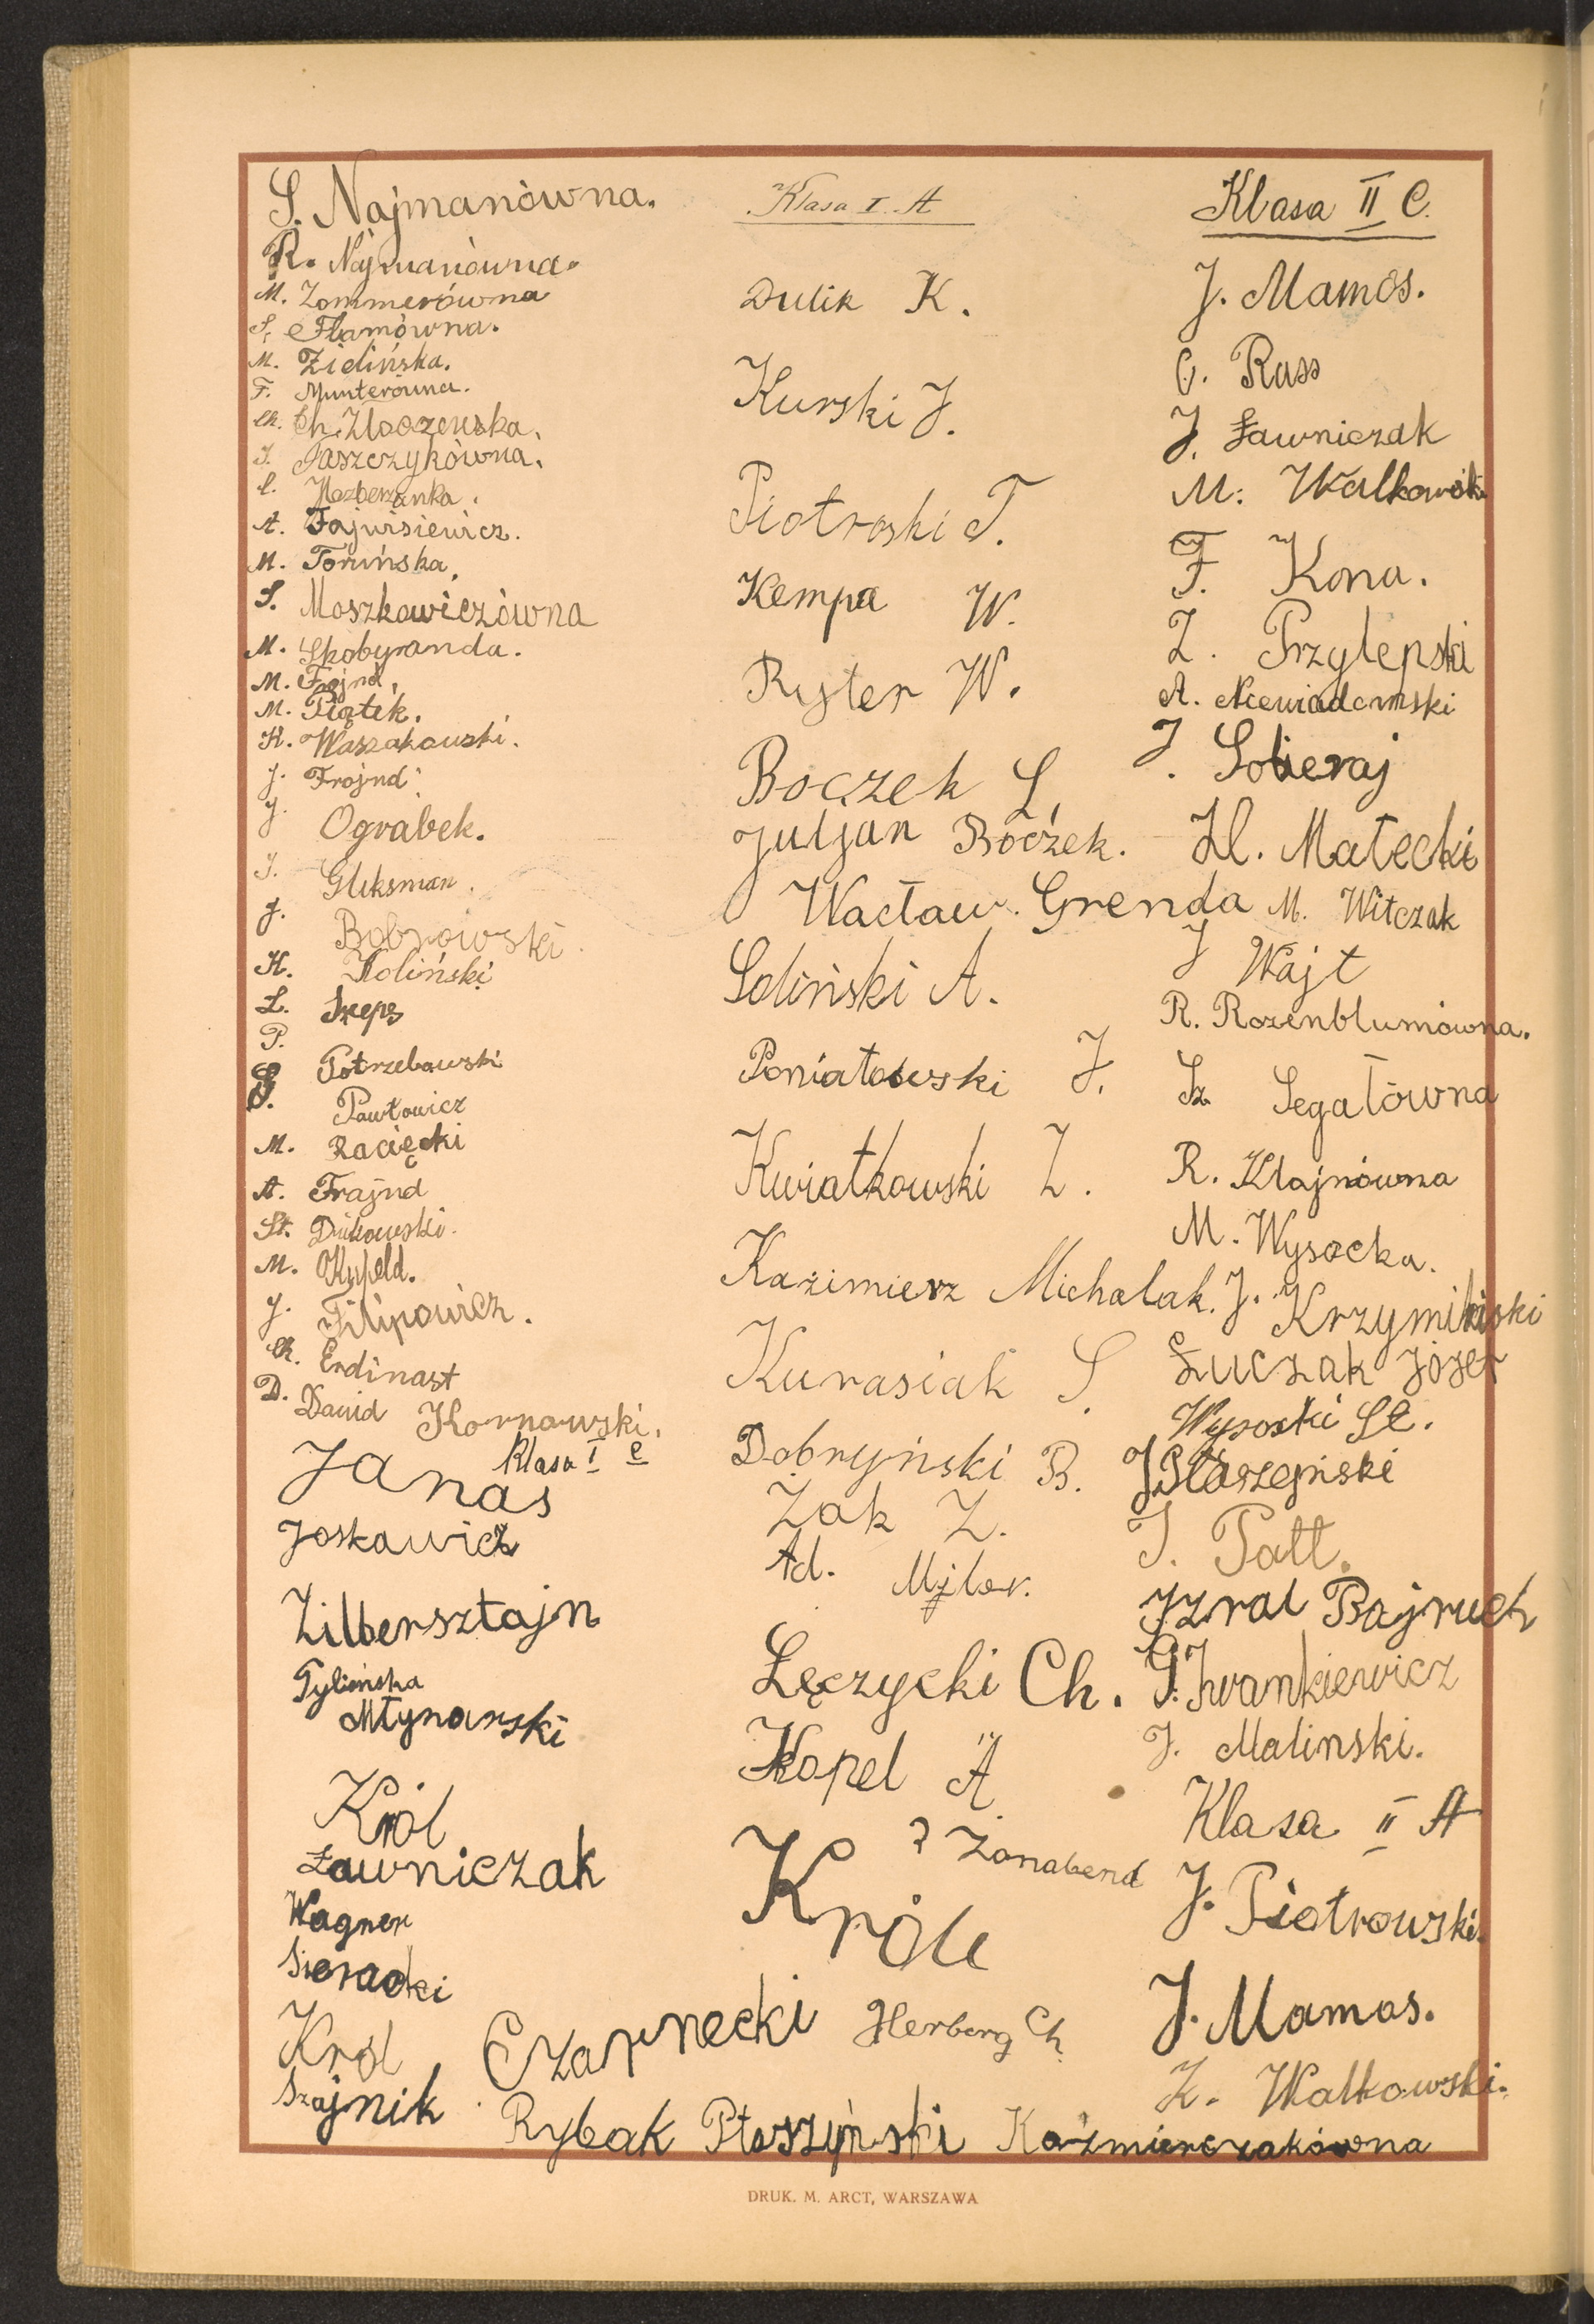 S. Najmanówna.
R. Najmanówna.
M. Zommerówna
S. Flamówna.
M. Zielińska.
F. Munterówna.
Ch. Ch. Złoczewska.
J. Taszczykówna.
A. Fajwisiewicz.
M. Toruńska.
S. Moszkowiczówna
M. Skobyranda.
M. Frojnd.
M. Piątek.
K. Waszakowski.
J. Frojnd.
J. Ograbek.
J. Gliksman.
J. Bobrowski.
H. Holiński
L. Szeps
P. Potrzebowski
S. Pawłowicz
M. Racięcki
A. Frajnd
St.
M.
J. Filipowicz.
Ch. Erdinast
D. Dawid Kornowski.
Klasa I c
Janas
Joskowicz
Zilbersztajn
Tylińska
Młynarski
Król
Ławniczak
Wagner
Sieradki
Król
Szajnik
Klasa I. A
Dulik K.
Kurski J.
Piotroski T.
Kempa W.
Ryster W.
Boczek L.
Juljan Boczek.
Wacław. Grenda
Soliński A.
Poniatowski J.
Kwiatkowski Z.
Kazimierz Michalak.
Kurasiak S.
Dobryński B.
Żak Z.
Ad. Mjler.
Łęczycki Ch.
Kopel A.
? Zonabend
Króle
Czarnecki Herberg Ch.
Rybak Ptaszyński Kaźmierczakówna
Klasa II C.
J. Mamos.
C. Rass
J. Ławniczak
M. Walkowski
F. Kona.
Z. Przylepski
A. Niewiadomski
J. Sobieraj
Zl. Małecki
M. Witczak
J Wajt
R. Rozenblumówna.
Sz Segałówna
R. Klajnówna
M. Wysocka.
J. Krzymiński
Łuczak Józef
Wysocki St.
J Staszepiski
J. Patt.
Jzral Bajruch
G. Iwankiewicz
J. Malinski.
Klasa II A
J. Piotrowski.
J. Mamos.
Z. Walkowski.
DRUK. M. ARCT, WARSZAWA